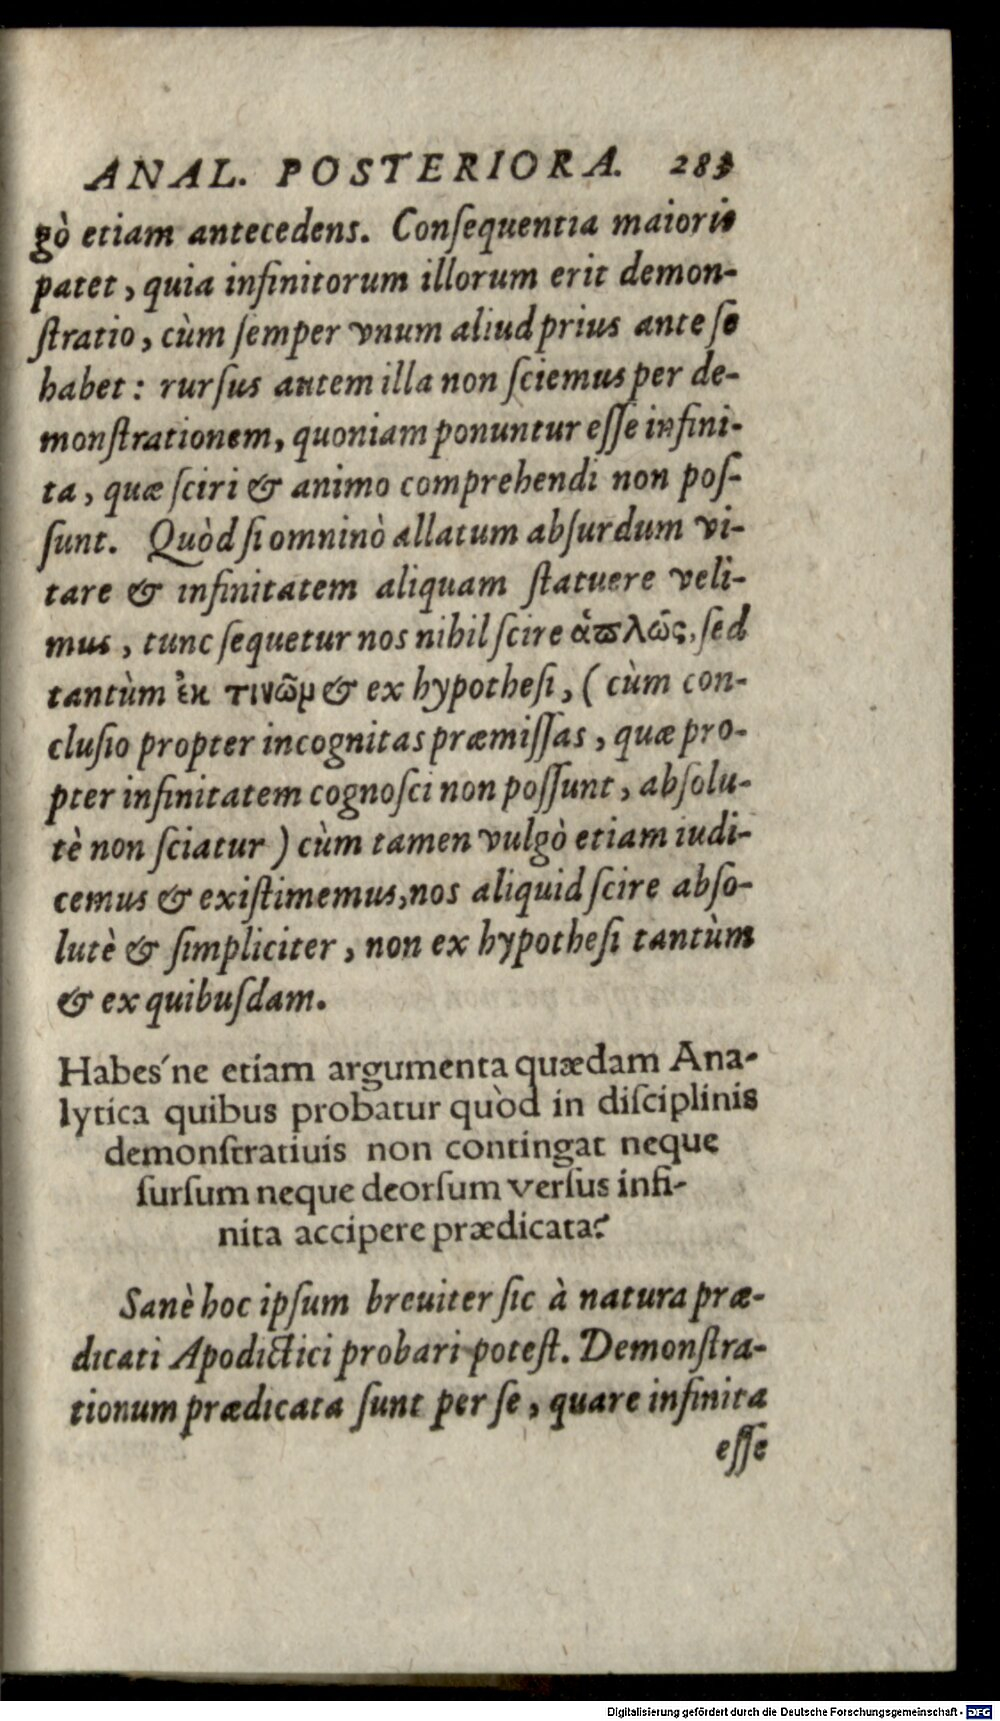 ANAL. POSTERIORA. 283
gò etiam antecedens. Conſequentia maioris
patet, quia infinitorum illorum erit demon-
ſtratio, cùm ſemper vnum aliud prius ante ſe
habet: rurſus autem illa non ſciemus per de-
monſtrationem, quoniam ponuntur eſſe infini-
ta, quæ ſciri & animo comprehendi non poſ-
ſunt. Quòd ſi omninò allatum abſurdum vi-
tare & infinitatem aliquam ſtatuere veli-
mus, tunc ſequetur nos nihil ſcire ἁπλῶς, ſed
tantùm ἐκ τινῶν & ex hypotheſi, (cùm con-
cluſio propter incognitas præmiſſas, quæ pro-
pter infinitatem cognoſci non poſſunt, abſolu-
tè non ſciatur) cùm tamen vulgò etiam iudi-
cemus & exiſtimemus, nos aliquid ſcire abſo-
lutè & ſimpliciter, non ex hypotheſi tantùm
& ex quibuſdam.
Habes'ne etiam argumenta quædam Ana-
lytica quibus probatur quòd in diſciplinis
demonſtratiuis non contingat neque
ſurſum neque deorſum verſus infi-
nita accipere prædicata?
Sanè hoc ipſum breuiter ſic à natura præ-
dicati Apodictici probari poteſt. Demonſtra-
tionum prædicata ſunt per ſe, quare infinita
eſſe
Digitalisierung gefördert durch die Deutsche Forschungsgemeinschaft - DFG